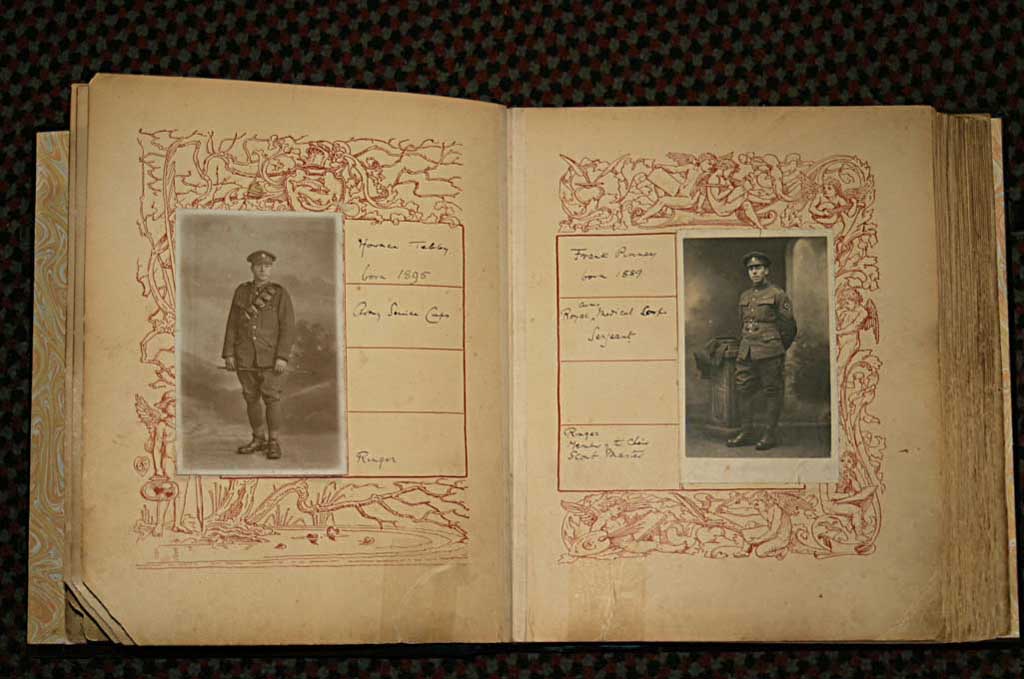 Norman Tebby
born 1895
Army Service Corps
Ringer
Frank Pinney
born 1889
Army
Royal Medical Corps
Sergeant
Ringer
Member of the Choir
Scout Master